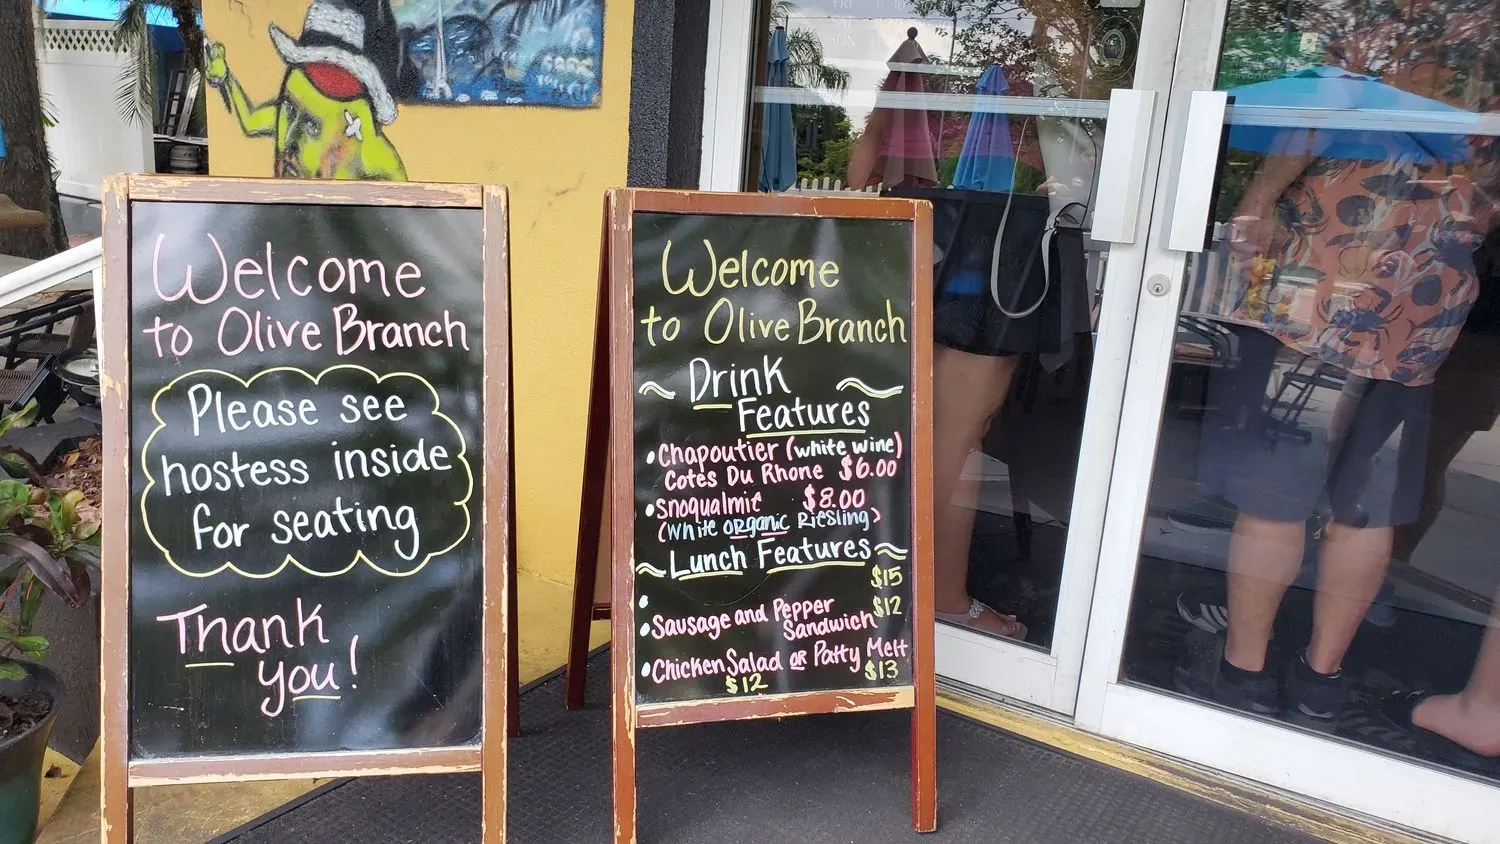 Welcome
to Olive Branch
Please see
hostess inside
for seating
Thank
you!
Welcome
to Olive Branch
Drink
Features
• Chapoutier (white wine)
Cotes Du Rhone $6.00
• Snoqualmie $8.00
(White organic Riesling)
Lunch Features
$15
•
• Sausage and Pepper $12
Sandwich
• Chicken Salad or Patty Melt
$12 $13
FRI
SAT
SUN